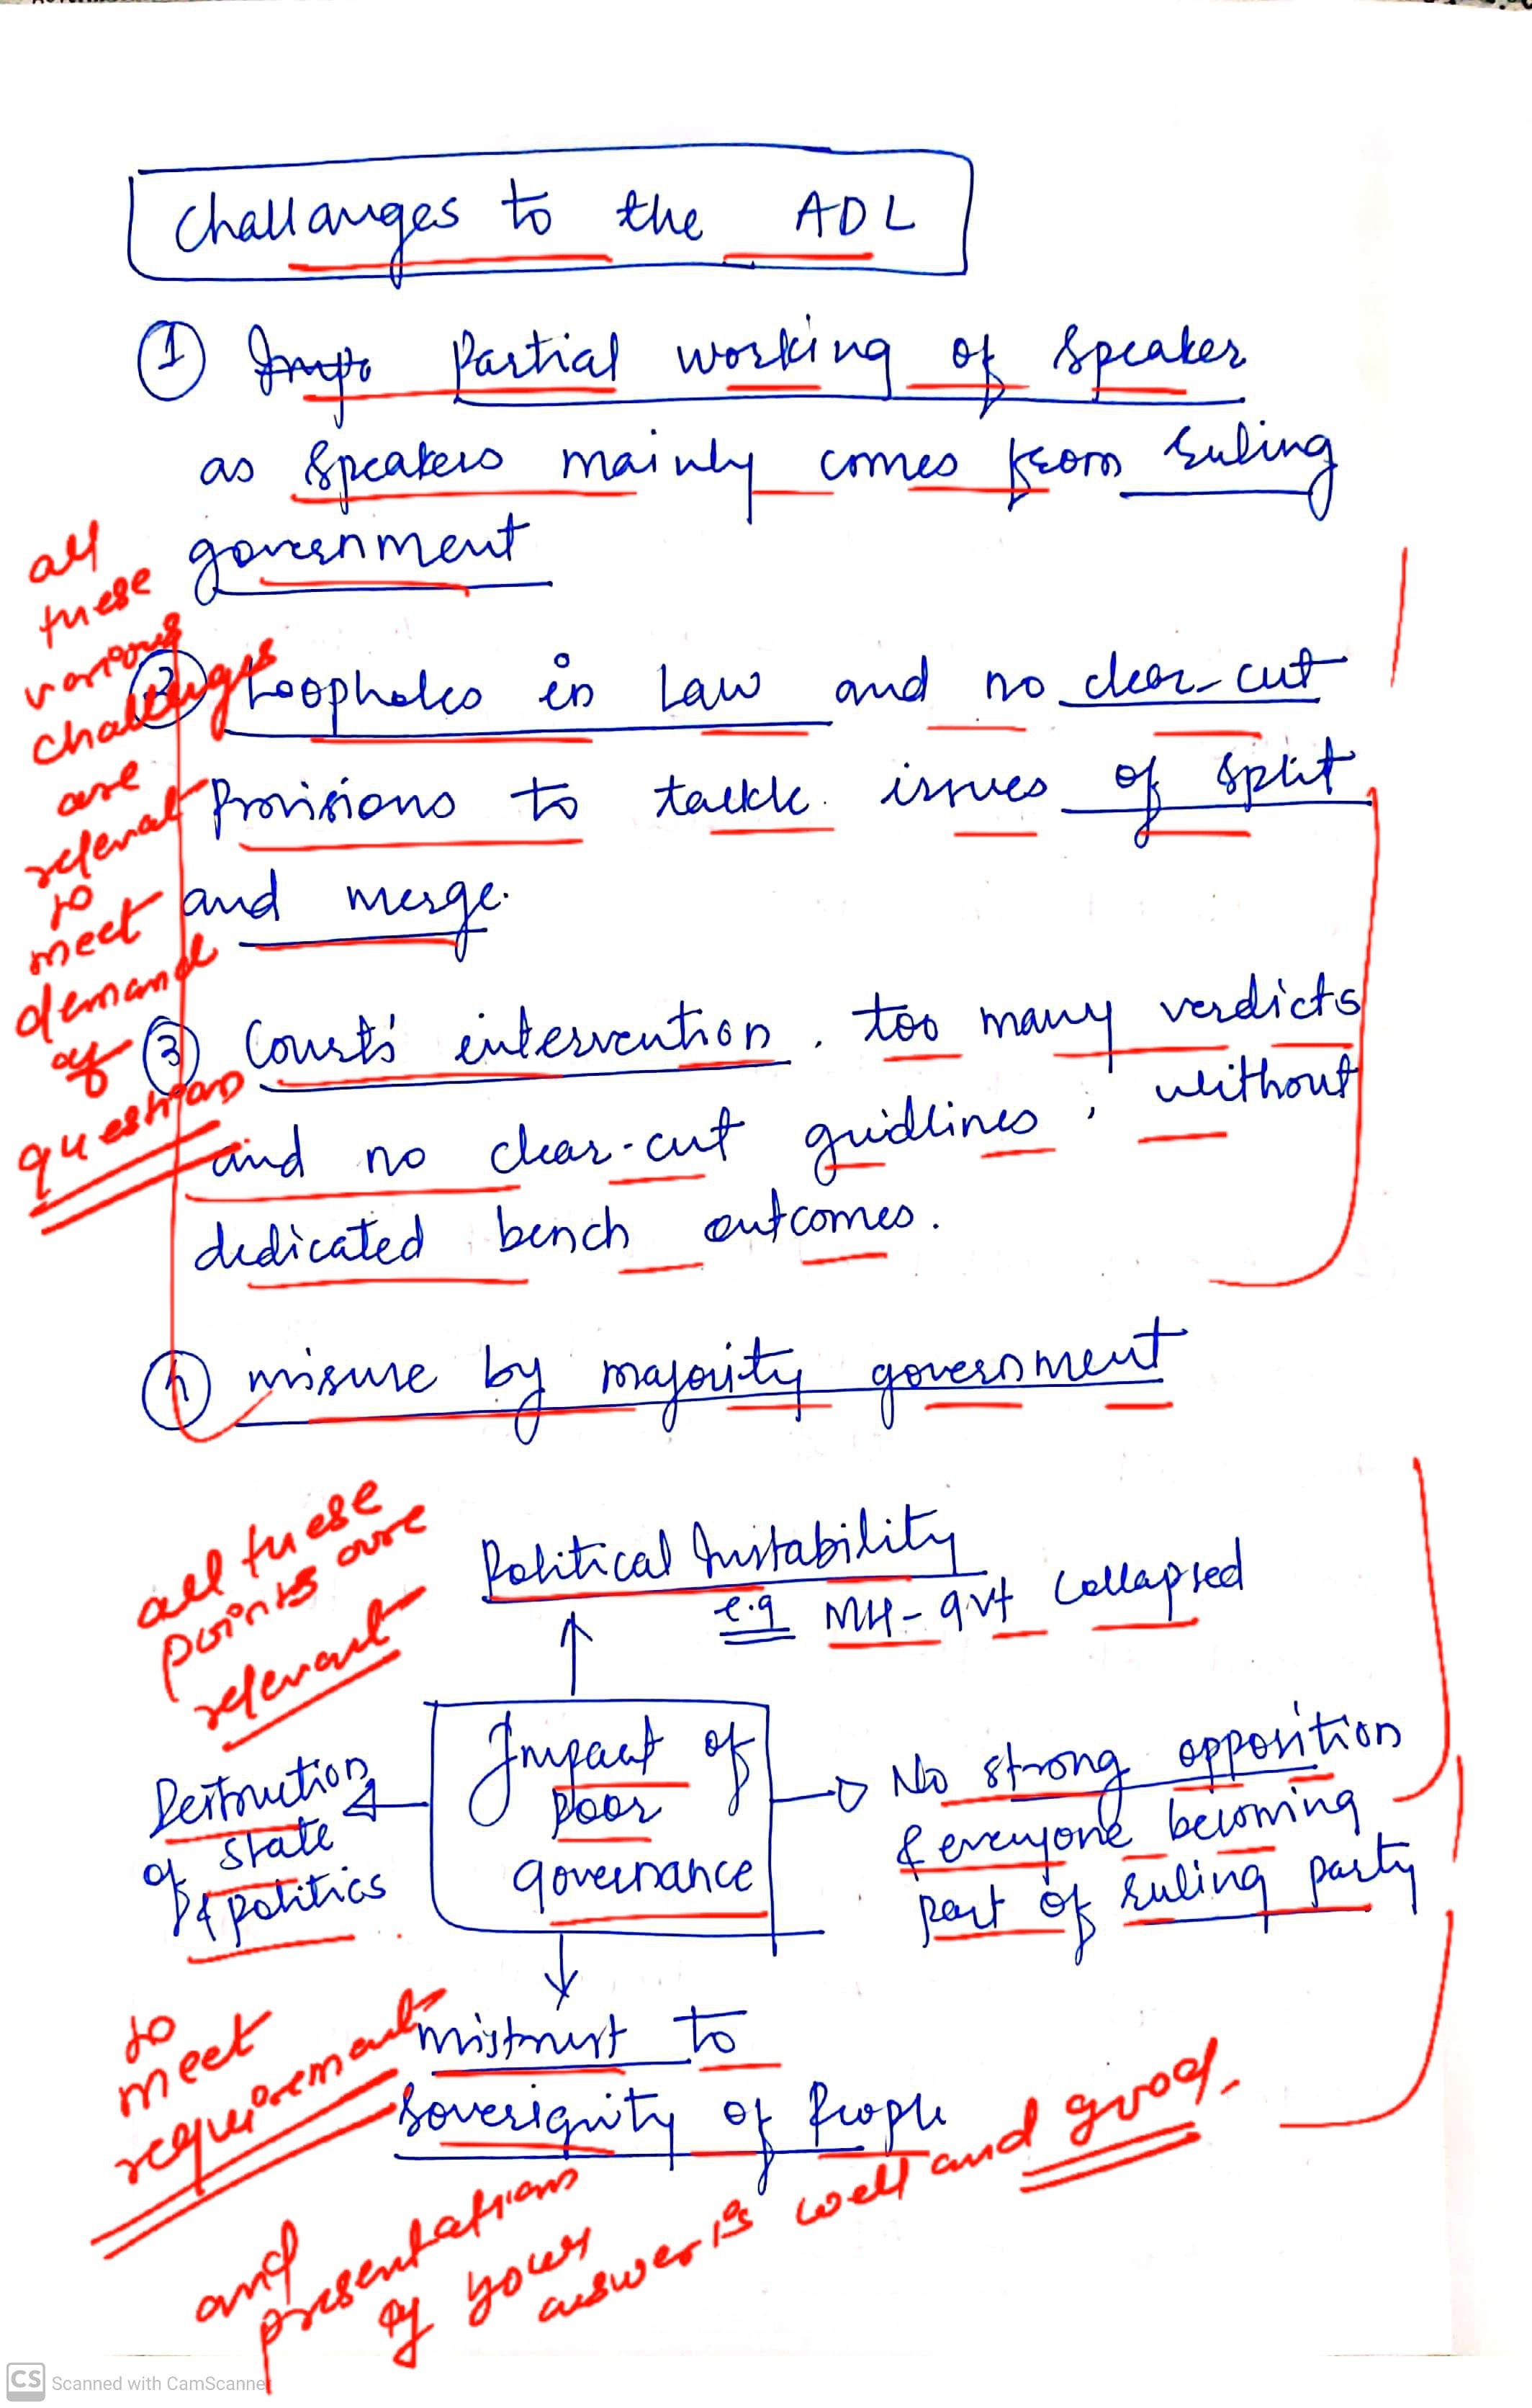 Challanges to the ADL
① Impa Partial working of Speaker
as Speakers mainly comes from ruling
government
② Loopholes in Law and no clear-cut
Provisions to tackle issues of split
and merge.
③ Courts' intervention, too many verdicts
and no clear-cut guidlines, without
dedicated bench outcomes.
④ misuse by majority government
all
these
various
challenges
are
relevat
to
meet
demand
of
question
Political Instability
e.g MH-gvt Collapsed
Impact of
Poor
governance
Destruction
of state
& politics
No strong opposition
& everyone becoming
part of ruling party
mistrust to
Soverignity of People
all these
points are
relevant
to
meet
requirement
and
presentation
of your
answer is well and good.
CS Scanned with CamScanner